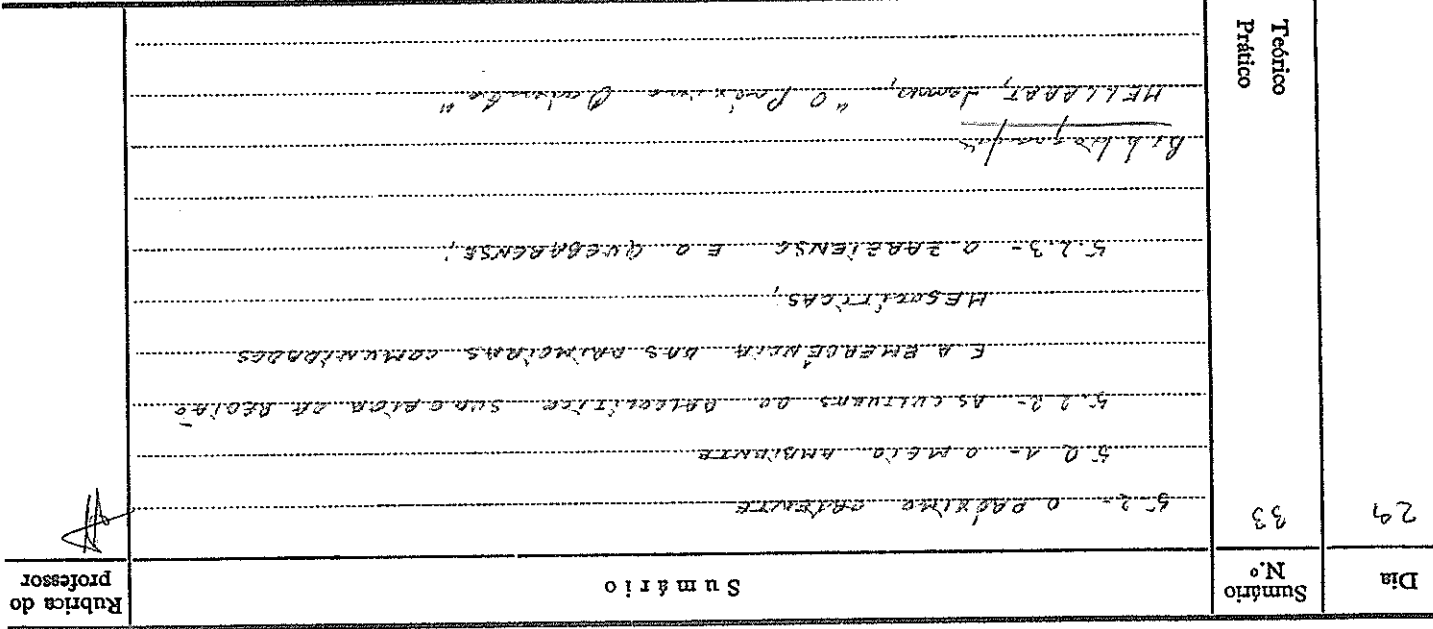 Dia
Sumário N.º
Sumário
Rubrica do professor
29
33
5.2- O PRÓXIMO ORIENTE
5.2.1- O MEIO AMBIENTE
5.2.2- AS CULTURAS DO PALEOLÍTICO SUPERIOR DA REGIÃO
E A EMERGÊNCIA DAS PRIMEIRAS COMUNIDADES
MESOLÍTICAS;
5.2.3- O ZARZIENSE E O QUEBARENSE;
Bibliografia
MELLAART, James, "O Próximo Oriente"
Teórico
Prático